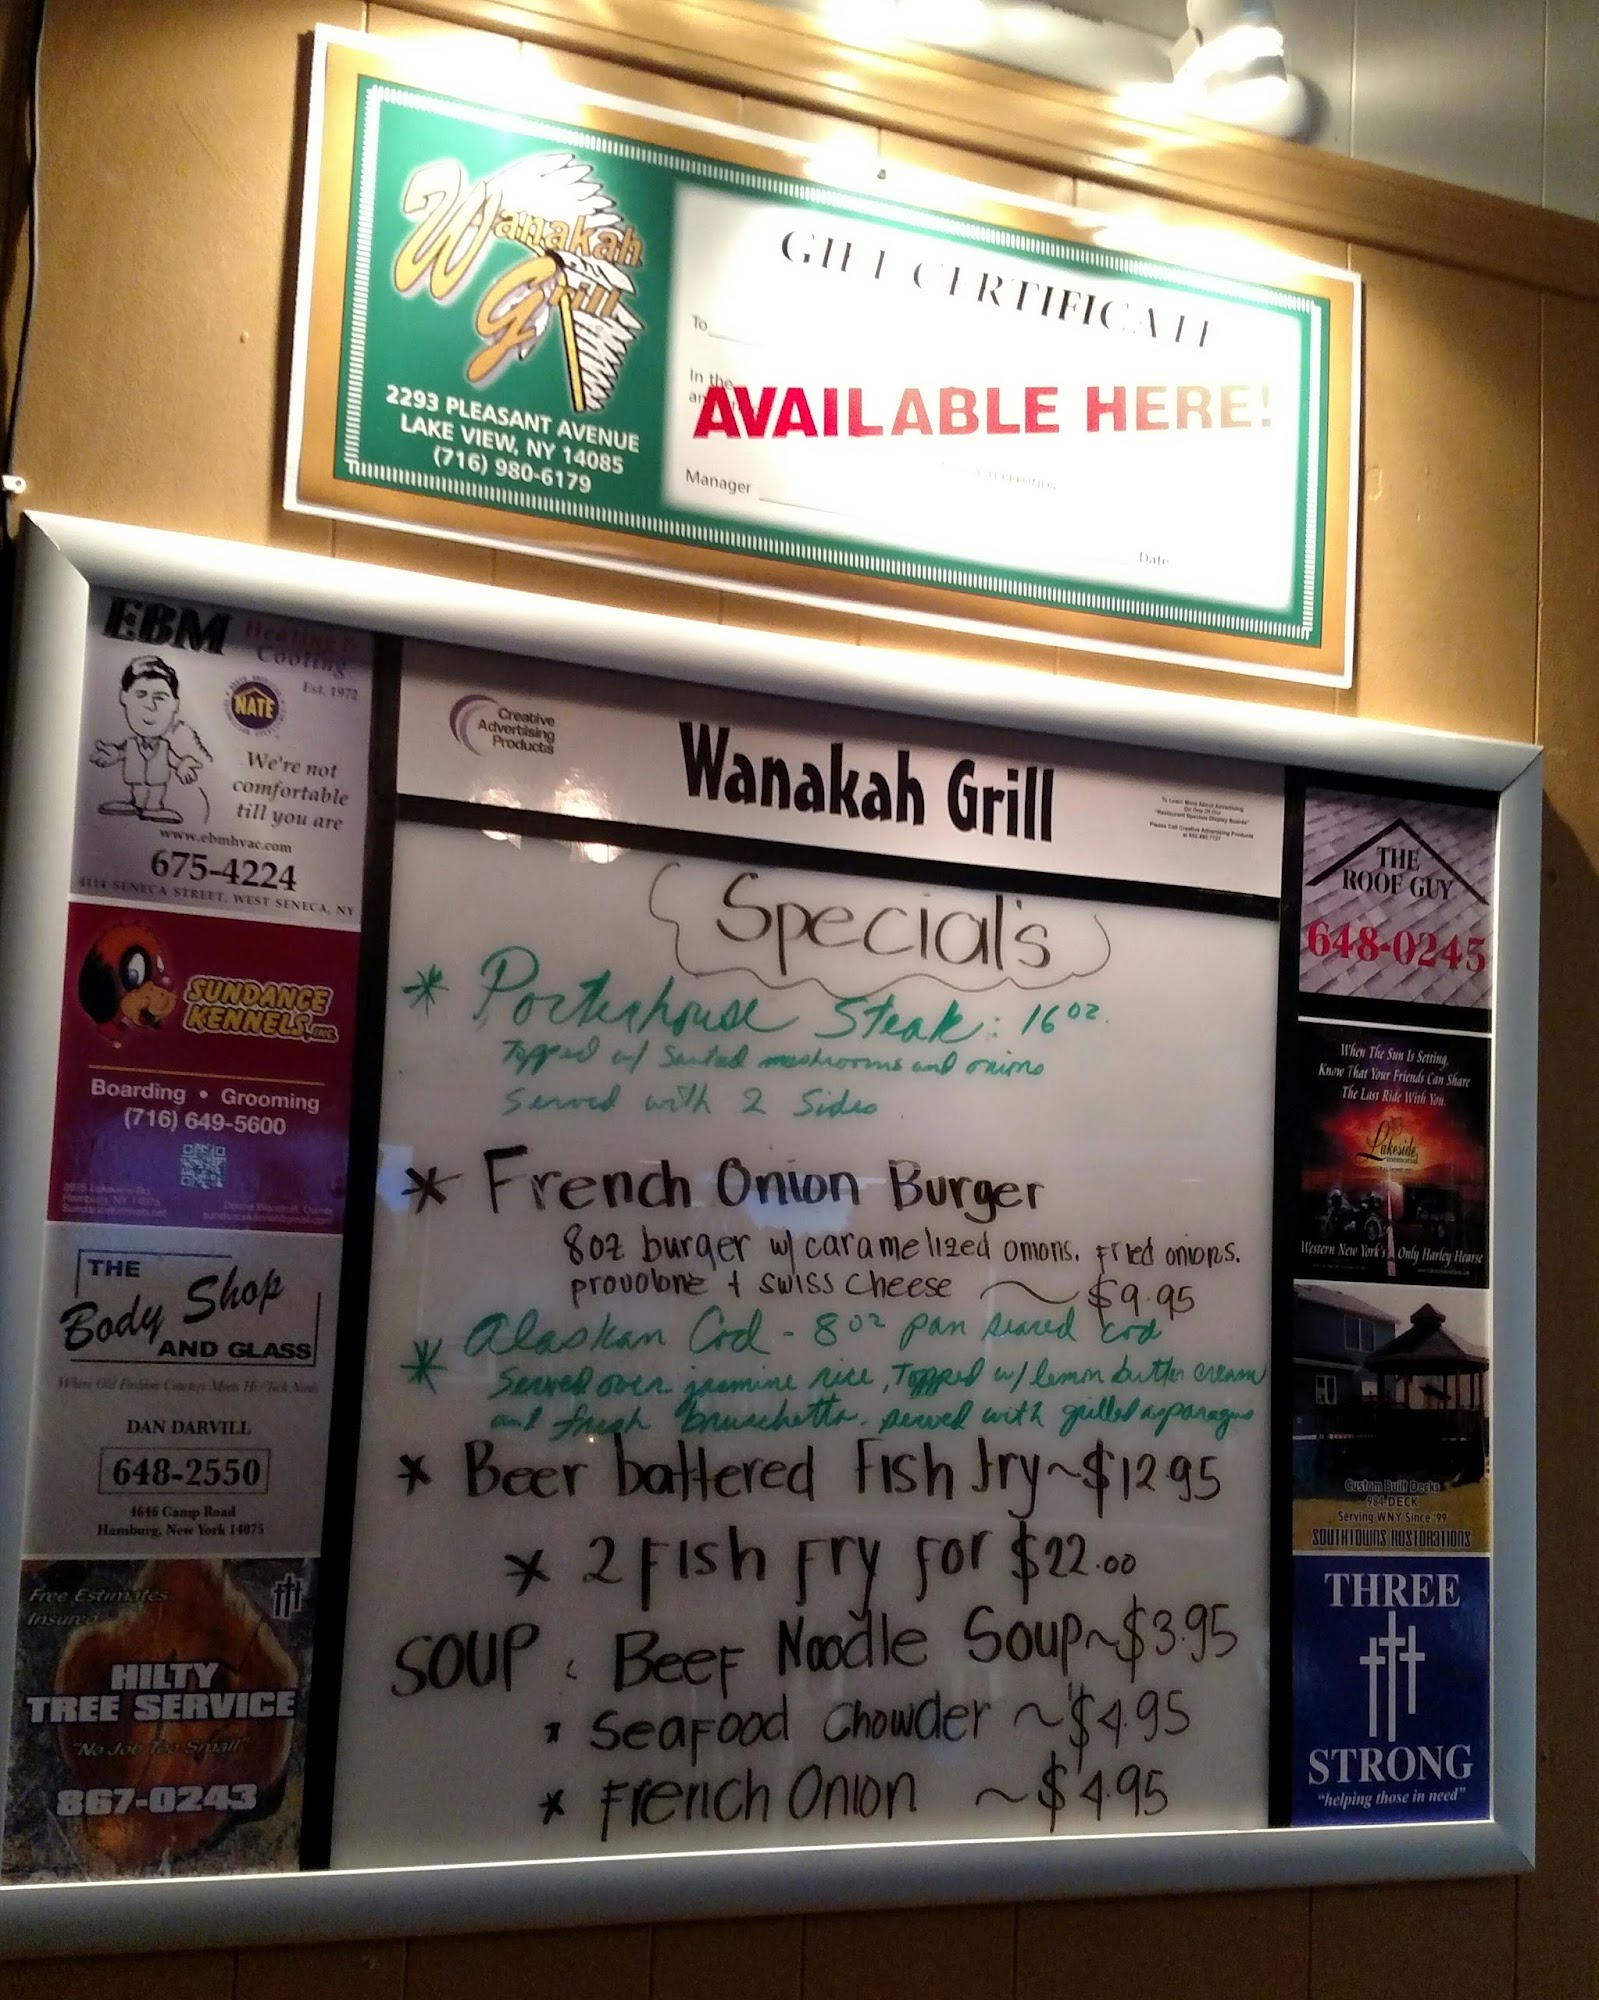 Wanakah
Grill
2293 PLEASANT AVENUE
LAKE VIEW, NY 14085
(716) 980-6179
GIFT CERTIFICATE
To
In the
AVAILABLE HERE!
Manager
Date
EBM Heating &
Cooling
Est. 1972
NATE
We're not
comfortable
till you are
www.ebmhvac.com
675-4224
4114 SENECA STREET, WEST SENECA, NY
SUNDANCE
KENNELS, INC.
Boarding • Grooming
(716) 649-5600
THE
Body Shop
AND GLASS
Where Old Fashion Courtesy Meets Hi-Tech Needs
DAN DARVILL
648-2550
4646 Camp Road
Hamburg, New York 14075
Free Estimates
Insured
HILTY
TREE SERVICE
"No Job Too Small"
867-0243
Creative
Advertising
Products
Wanakah Grill
To Learn More About Advertising
On One Of Our
"Restaurant Specials Display Boards"
Please Call Creative Advertising Products
Special's
* Porterhouse Steak: 16oz.
Topped w/ Sauted mushrooms and onions
Served with 2 Sides.
* French Onion Burger
8oz burger w/ caramelized onions, fried onions,
provolone + swiss cheese ~ $9.95
* Alaskan Cod - 8oz pan seared cod
Served over jasmine rice, Topped w/ lemon butter cream
and fresh bruschetta. served with grilled asparagus
* Beer battered Fish fry ~ $12.95
* 2 Fish Fry For $22.00
SOUP: Beef Noodle Soup ~ $3.95
* Seafood Chowder ~ $4.95
* French Onion ~ $4.95
THE
ROOF GUY
648-0245
When The Sun Is Setting,
Know That Your Friends Can Share
The Last Ride With You.
Lakeside
Memorial
Western New York's Only Harley Hearse
Custom Built Decks
984-DECK
Serving WNY Since '99
SOUTHTOWNS RESTORATIONS
THREE
STRONG
"helping those in need"